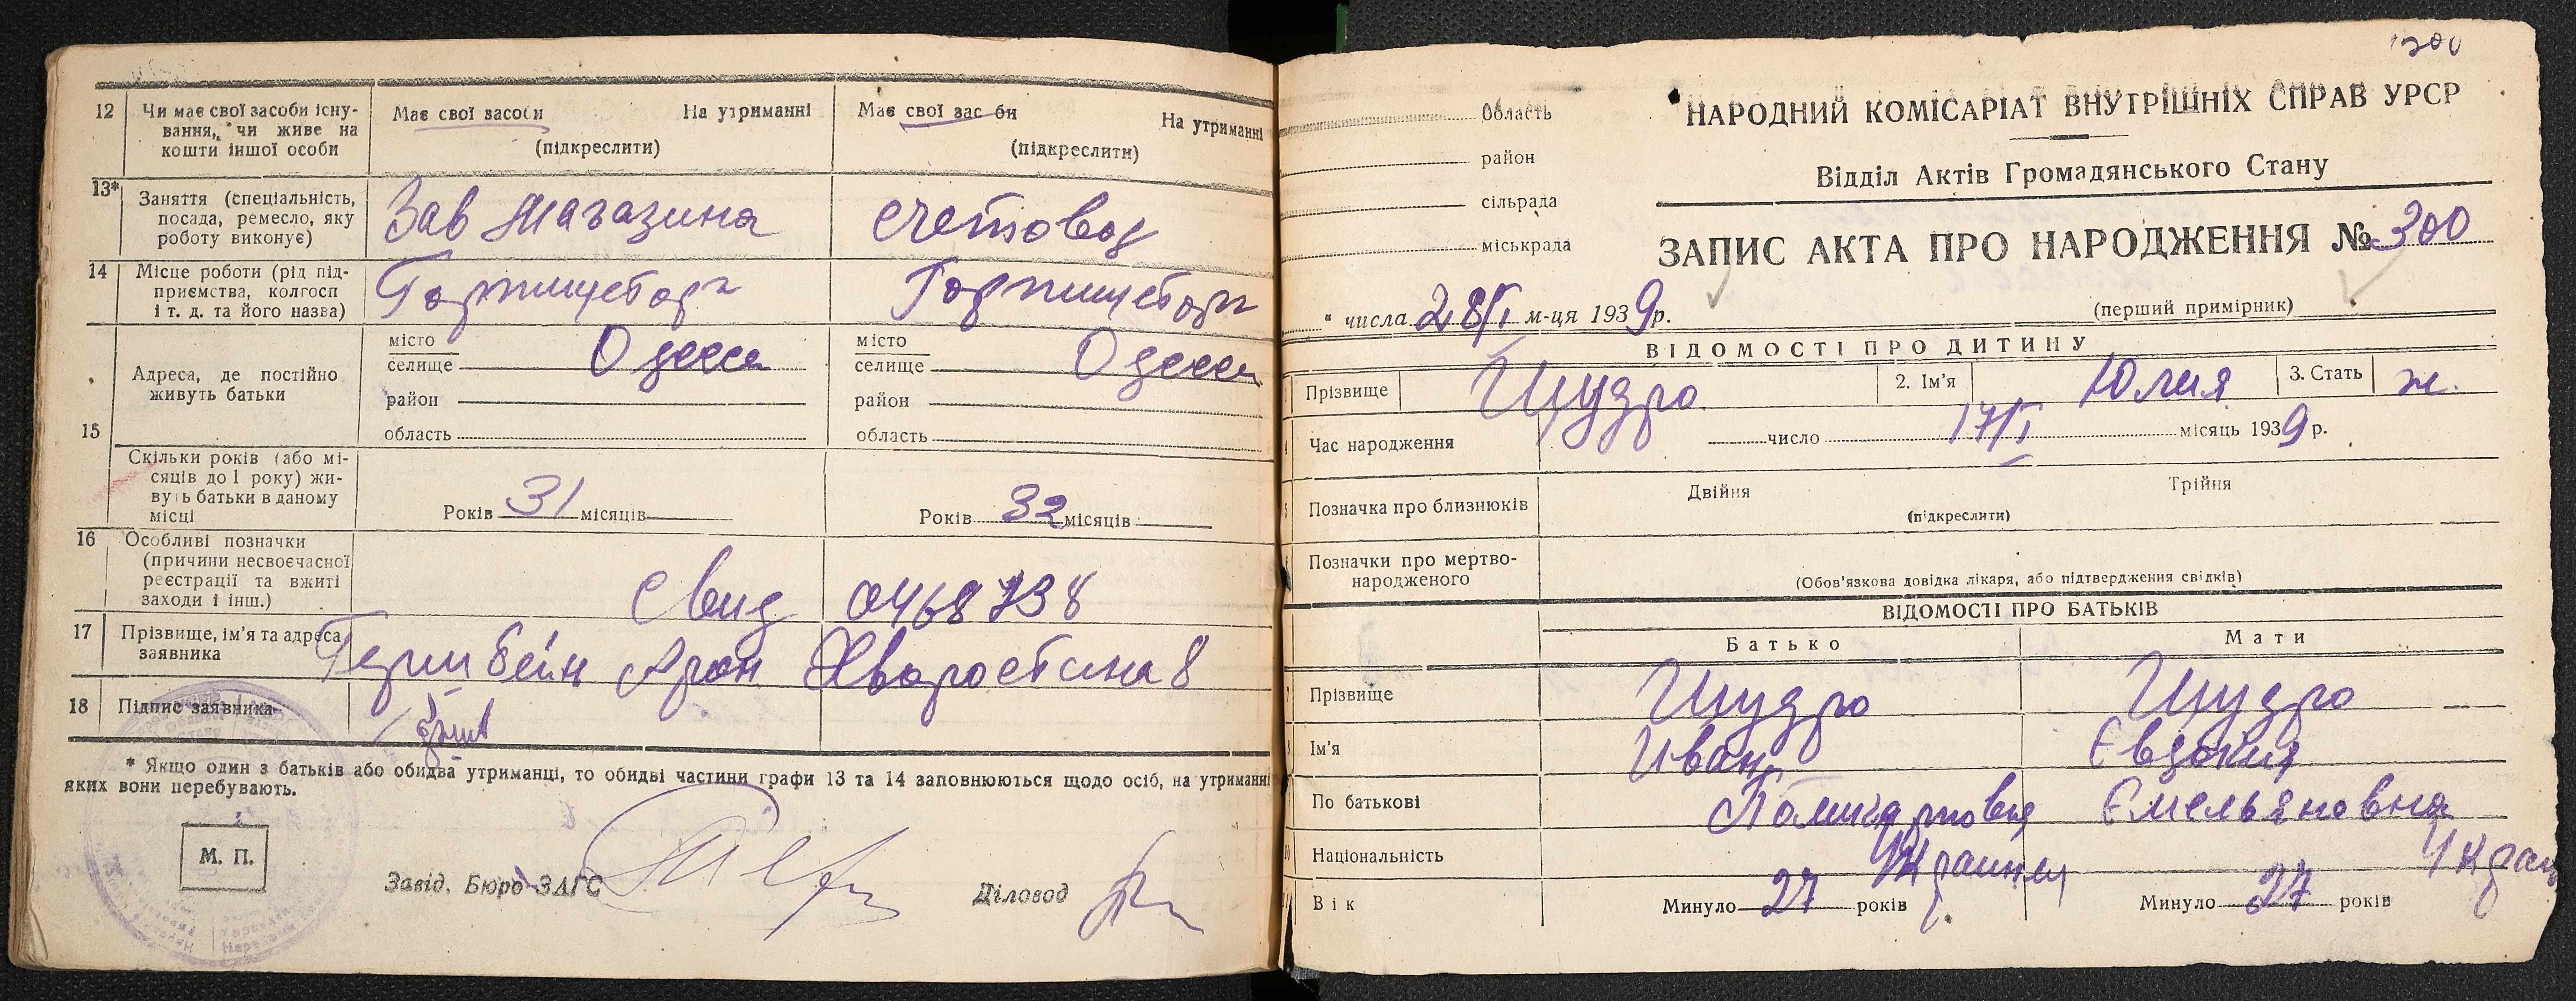 12 Чи має свої засоби існу-
вання, чи живе на
кошти іншої особи
Має свої засоби На утриманні
(підкреслити)
Має свої зас би На утриманні
(підкреслити)
13* Заняття (спеціальність,
посада, ремесло, яку
роботу виконує)
Зав Магазина
счетовод
14 Місце роботи (рід під-
приємства, колгосп
і т. д. та його назва)
Горпищеторг
Горпищеторг
15 Адреса, де постійно
живуть батьки
місто
селище Одесса
район
область
місто
селище Одесса
район
область
Скільки років (або мі-
сяців до 1 року) жи-
вуть батьки в даному
місці
Років 31 місяців
Років 32 місяців
16 Особливі позначки
(причини несвоєчасної
реєстрації та вжиті
заходи і інш.)
Свид 0468738
17 Прізвище, ім'я та адреса
заявника
Арон Хворостина 8
18 Підпис заявника
* Якщо один з батьків або обидва утриманці, то обидві частини графи 13 та 14 заповнюються щодо осіб, на утриманні
яких вони перебувають.
М. П.
Завід. Бюро ЗАГС
Діловод
300
Область
район
сільрада
міськрада
НАРОДНИЙ КОМІСАРІАТ ВНУТРІШНІХ СПРАВ УРСР
Відділ Актів Громадянського Стану
ЗАПИС АКТА ПРО НАРОДЖЕННЯ № 300
(перший примірник)
" числа 28/I м-ця 1939р.
ВІДОМОСТІ ПРО ДИТИНУ
Прізвище Щудро 2. Ім'я Юлия 3. Стать ж.
Час народження число 17/I місяць 1939 р.
Позначка про близнюків Двійня Трійня
(підкреслити)
Позначки про мертво-
народженого
(Обов'язкова довідка лікаря, або підтвердження свідків)
ВІДОМОСТІ ПРО БАТЬКІВ
Батько Мати
Прізвище Щудро Щудро
Ім'я Иван Євдокия
По батькові Поликарпович Ємельяновна
Національність Украинец Украин
Вік Минуло 27 років Минуло 27 років